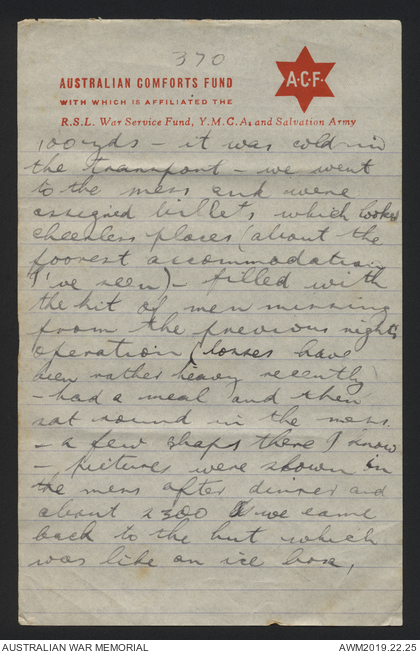 370
AUSTRALIAN COMFORTS FUND
WITH WHICH IS AFFILIATED THE
R.S.L. War Service Fund, Y.M.C.A. and Salvation Army
A·C·F·
100 yds - it was cold in
the transport - we went
to the mess and were
assigned billets which looked
cheerless places (about the
poorest accommodation
I've seen) - filled with
the kit of men missing
from the previous night's
operation (losses have
been rather heavy recently)
- had a meal and then
sat round in the mess
- a few chaps there I know
- pictures were shown in
the mess after dinner and
about 2300 we came
back to the hut which
was like an ice box,
AUSTRALIAN WAR MEMORIAL
AWM2019.22.25